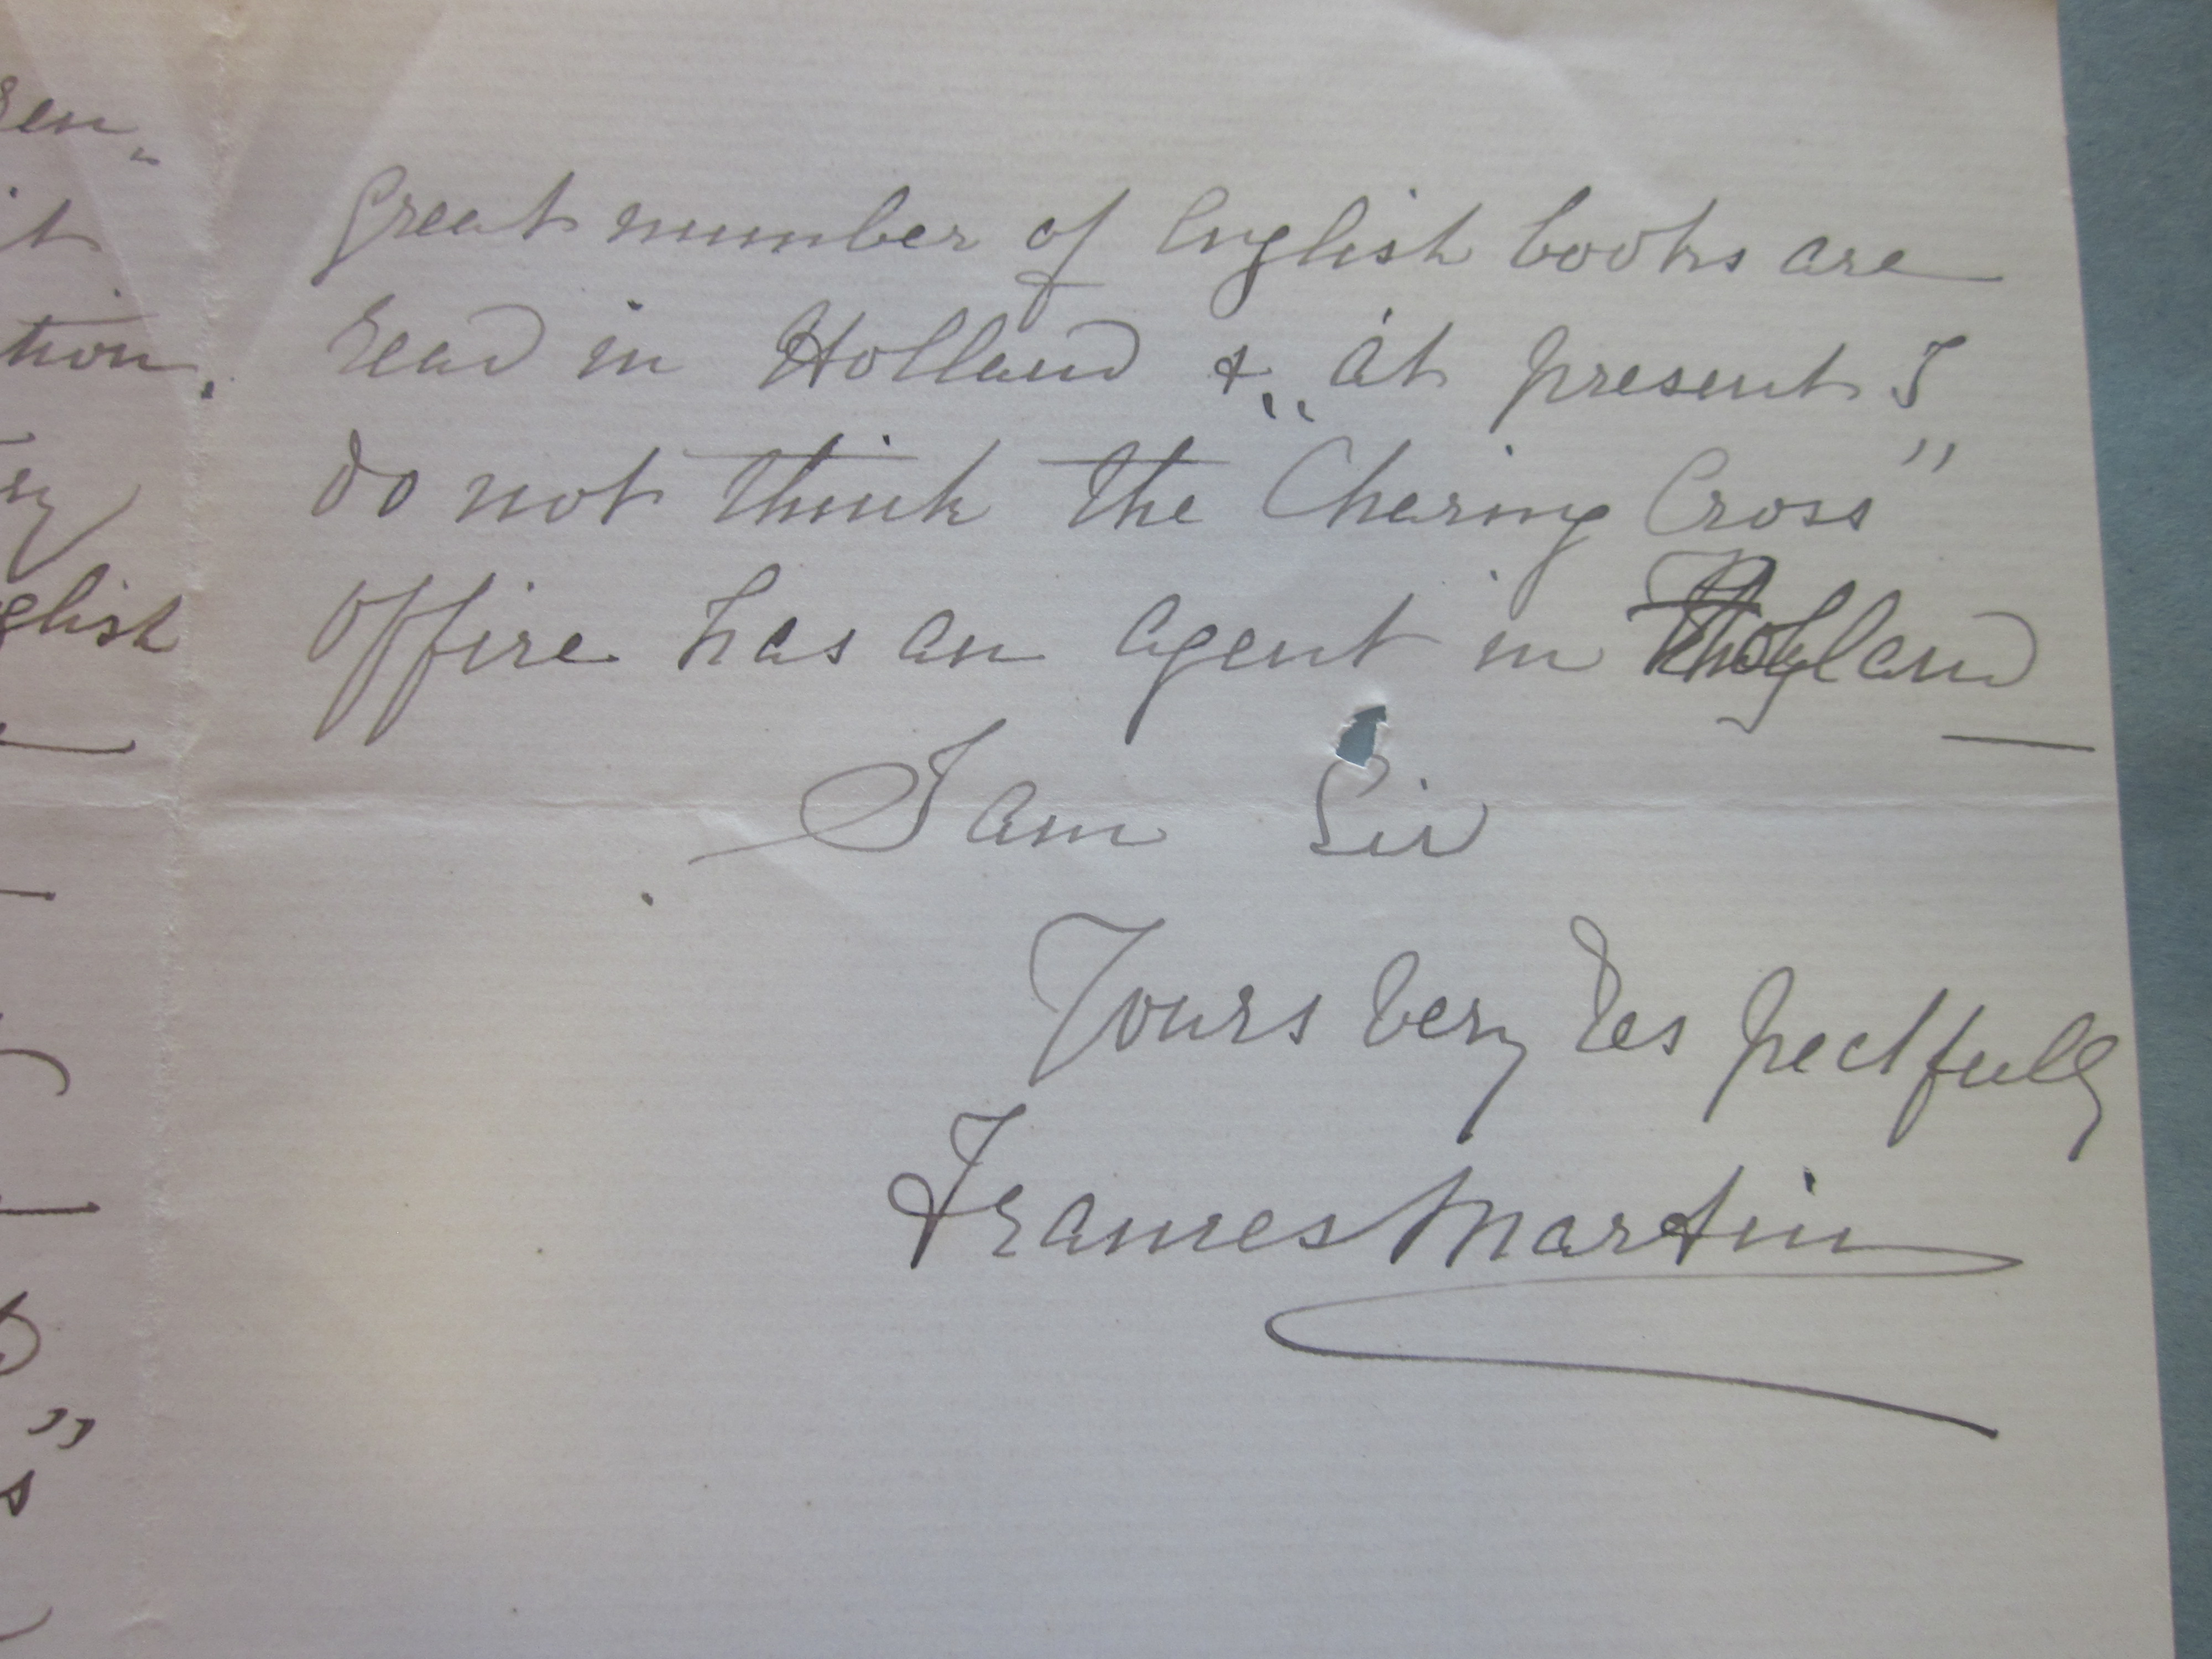 great number of English books are
read in Holland & at present I
do not think the „Charing Cross"
Office has an agent in Holland
I am Sir
Yours very respectfully
Frances Martin
it
tion.
glish